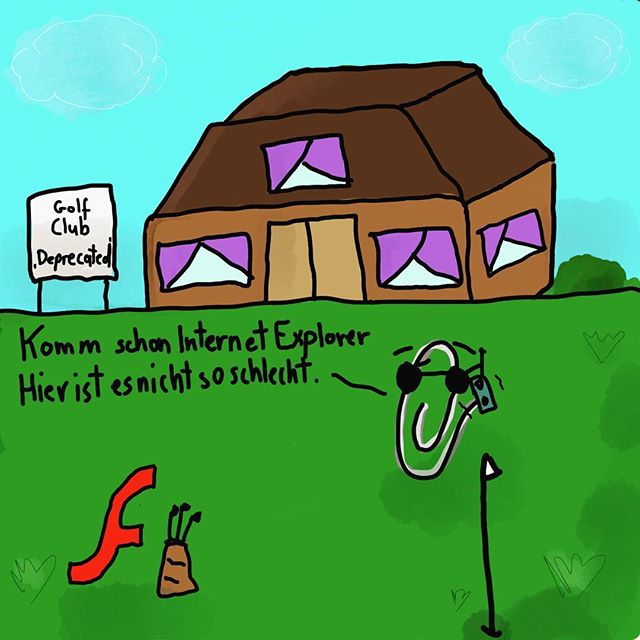 Golf
Club
"Deprecated"
Komm schon Internet Explorer
Hier ist es nicht so schlecht.